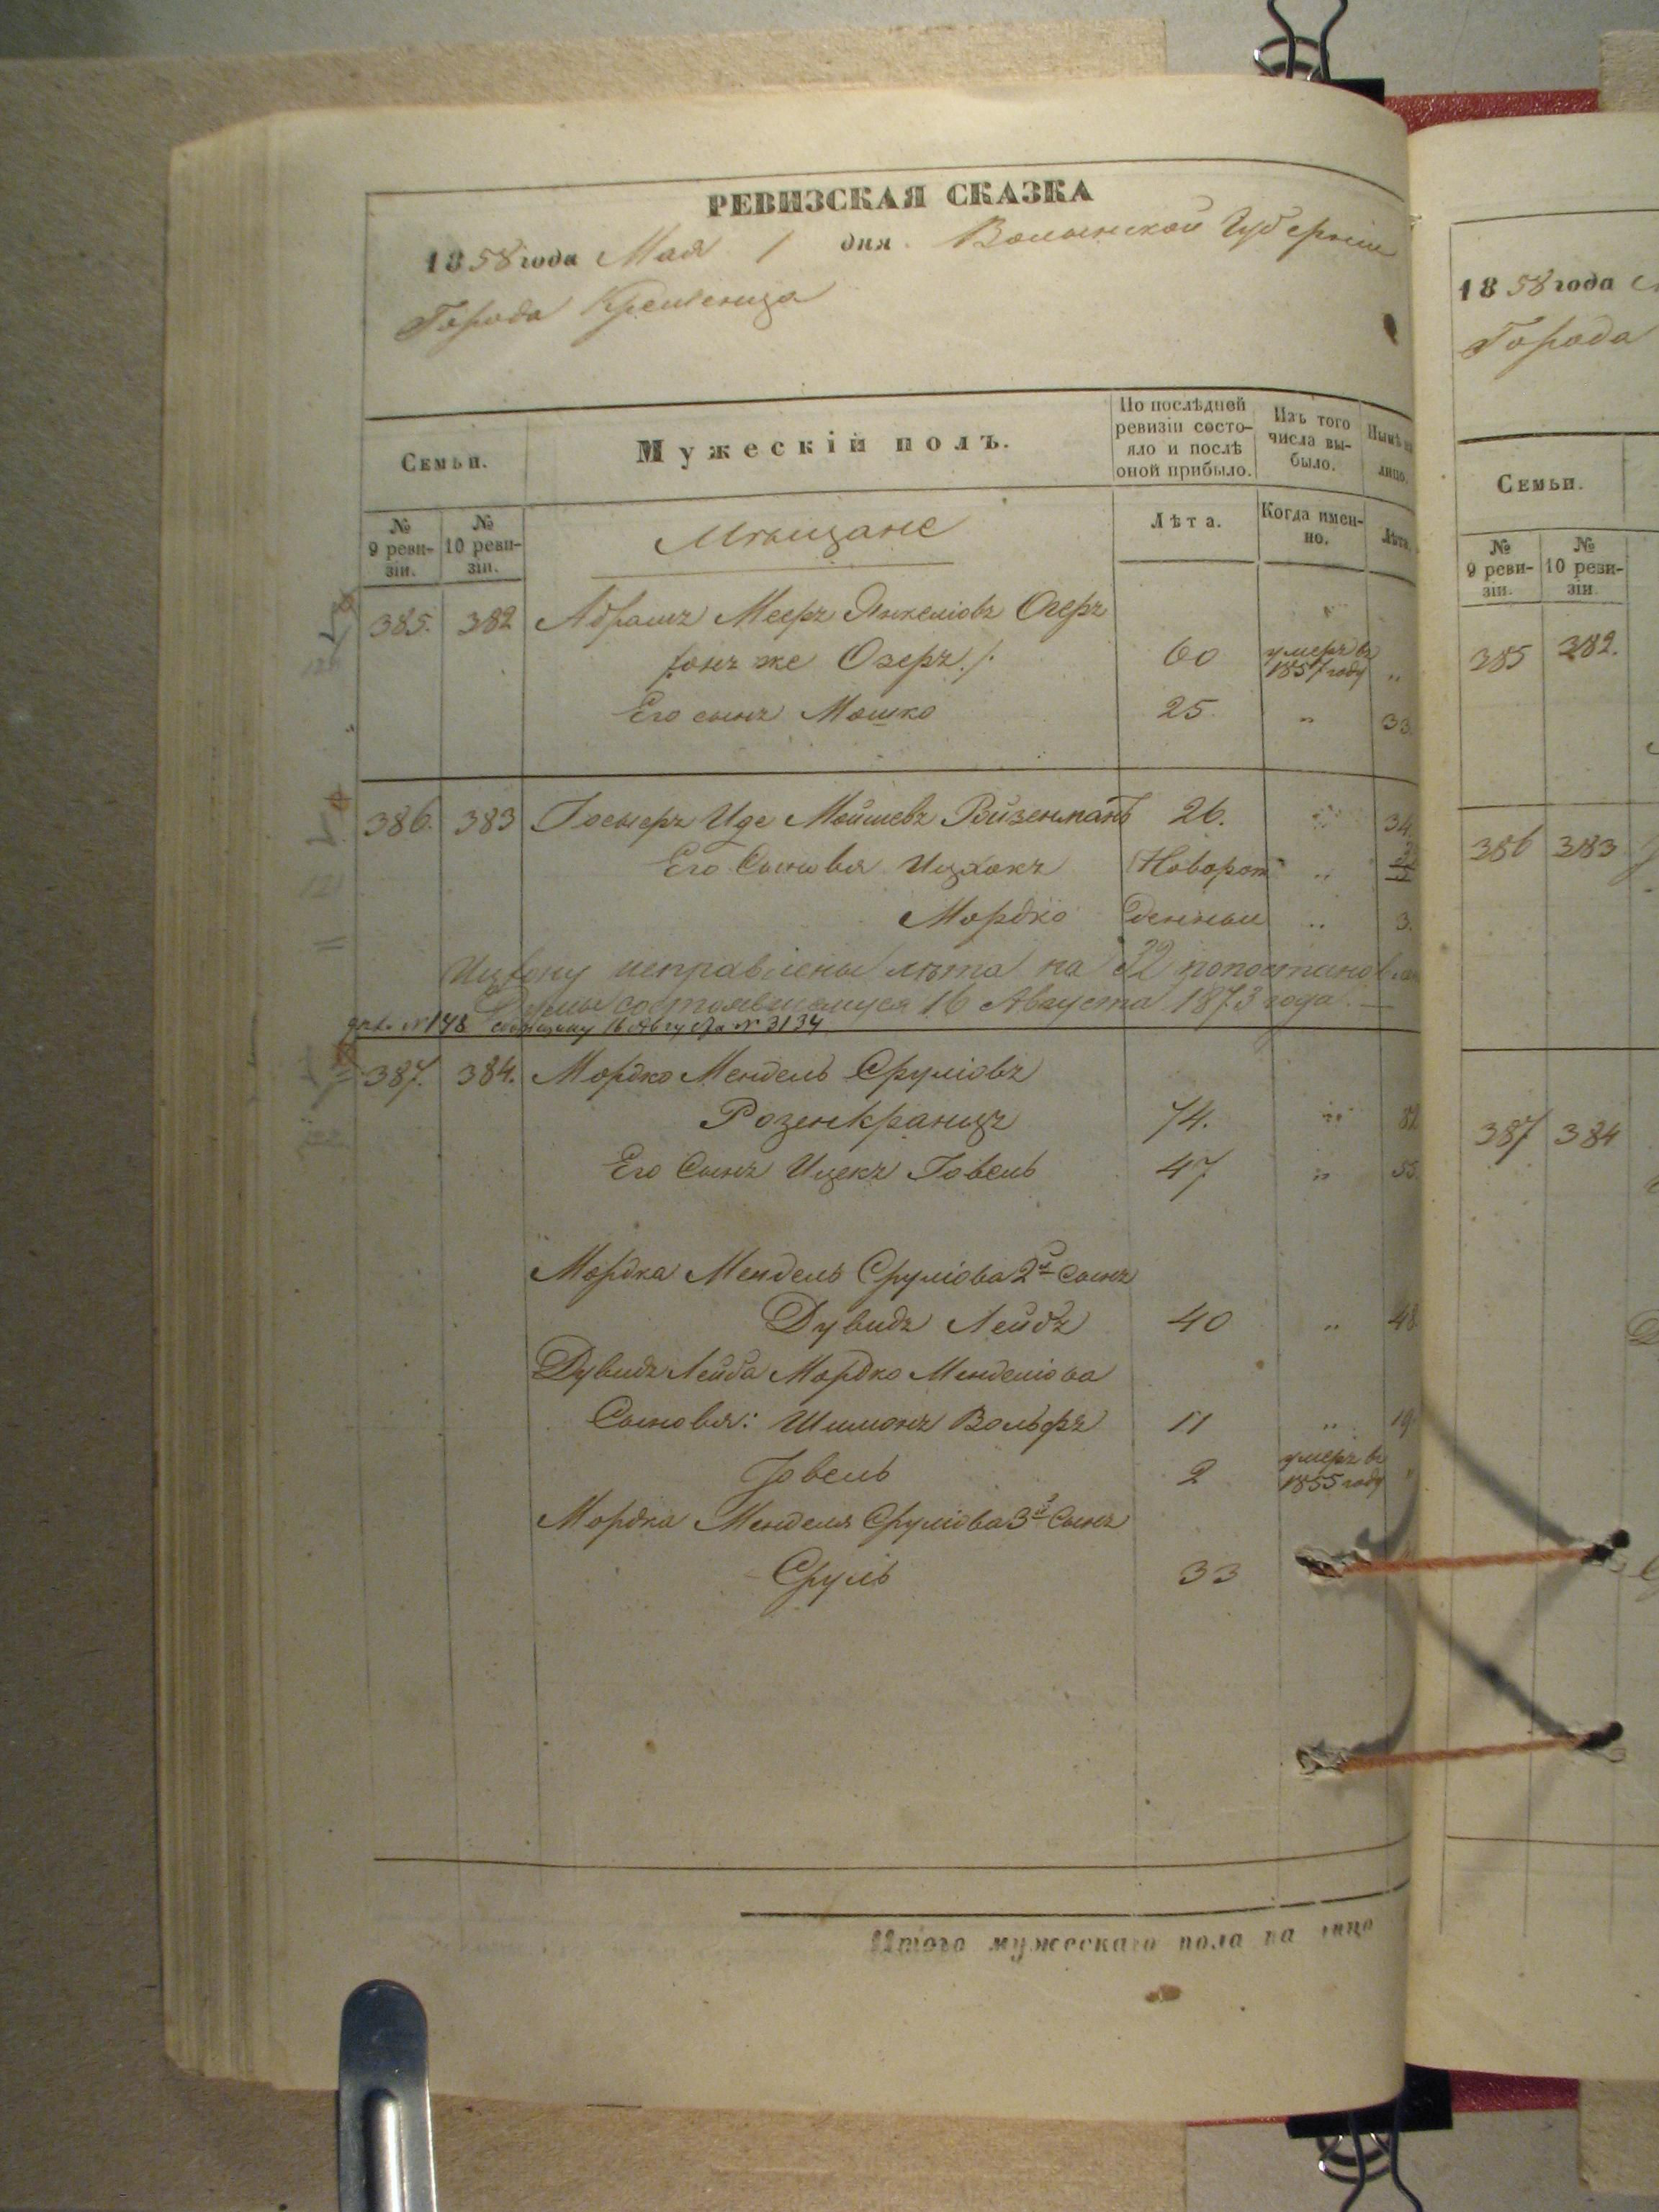 РЕВИЗСКАЯ СКАЗКА
1858 года Мая 1 дня. Волынской Губернии
Города Кременца
Семьи.
Мужескій полъ.
По послѣдней ревизіи состо-
яло и послѣ
оной прибыло.
Изъ того
числа вы-
было.
Нынѣ на
лицо.
№
9 реви-
зіи.
№
10 реви-
зіи.
Мѣщане
Лѣта.
Когда имен-
но.
Лѣта.
385. 382 Абрамъ Мееръ Янкеліовъ Огеръ
/онъ же Озеръ./. 60 умеръ въ 1857 году „
Его сынъ Мошко 25. „ 33.
386. 383 Иде Мойшевъ Вайзенманъ 26. „ 34.
Его Сыновья Ицхокъ Новорож „
Мордко денныи „ 3.
исправлены лѣта на 32
состоявшемуся 16 Августа 1873 года.
№ 148 16 Августа № 3134
387. 384. Мордко Мендель Сруліовъ
Розенкранцъ 74. „ 82
Его Сынъ Ицекъ Іовель 47 „ 55.
Мордка Мендель Сруліова 2й Сынъ
Дувидъ Лейбъ 40 „ 48
Дувидъ Лейба Мордко Менделіова
Сыновья: Шимонъ Вольфъ 11 „ 19.
Іовель 2 умеръ въ 1855 году „
Мордка Менделя Сруліова 3й Сынъ
Сруль 33
Итого мужескаго пола на лицо
1858 года
Города
Семьи.
№
9 реви-
зіи.
№
10 реви-
зіи.
385 382.
386 383
387 384